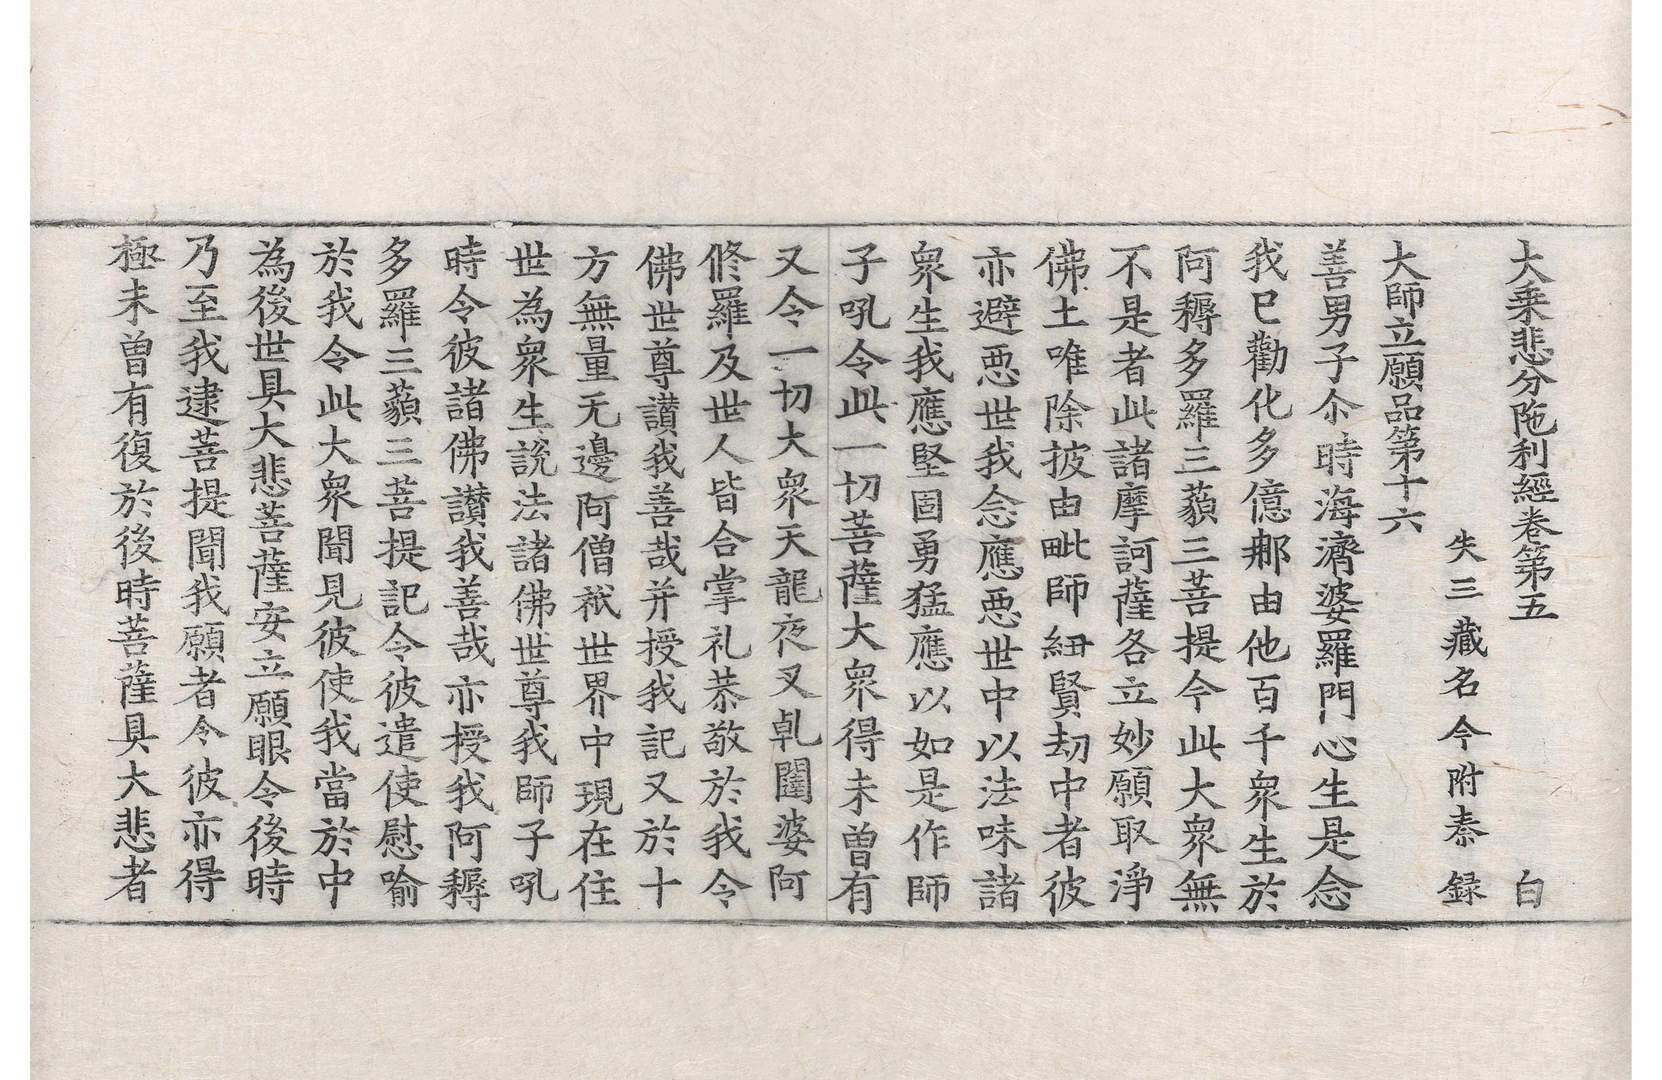 大乘悲分陁利經卷第五 白
失三藏名今附秦錄
大師立願品第十六
善男子尒時海濟婆羅門心生是念
我已勸化多億那由他百千衆生於
阿耨多羅三藐三菩提今此大衆無
不是者此諸摩訶薩各立妙願取淨
佛土唯除披由毗師紐賢劫中者彼
亦避惡世我念應惡世中以法味諸
衆生我應堅固勇猛應以如是作師
子吼令此一切菩薩大衆得未曾有
又令一切大衆天龍夜叉乹闥婆阿
脩羅及世人皆合掌礼恭敬於我令
佛世尊讃我善哉并授我記又於十
方無量无邊阿僧祇世界中現在住
世為衆生說法諸佛世尊我師子吼
時令彼諸佛讃我善哉亦授我阿耨
多羅三藐三菩提記令彼遣使慰喻
於我令此大衆聞見彼使我當於中
為後世具大悲菩薩安立願眼令後時
乃至我逮菩提聞我願者令彼亦得
極未曾有復於後時菩薩具大悲者